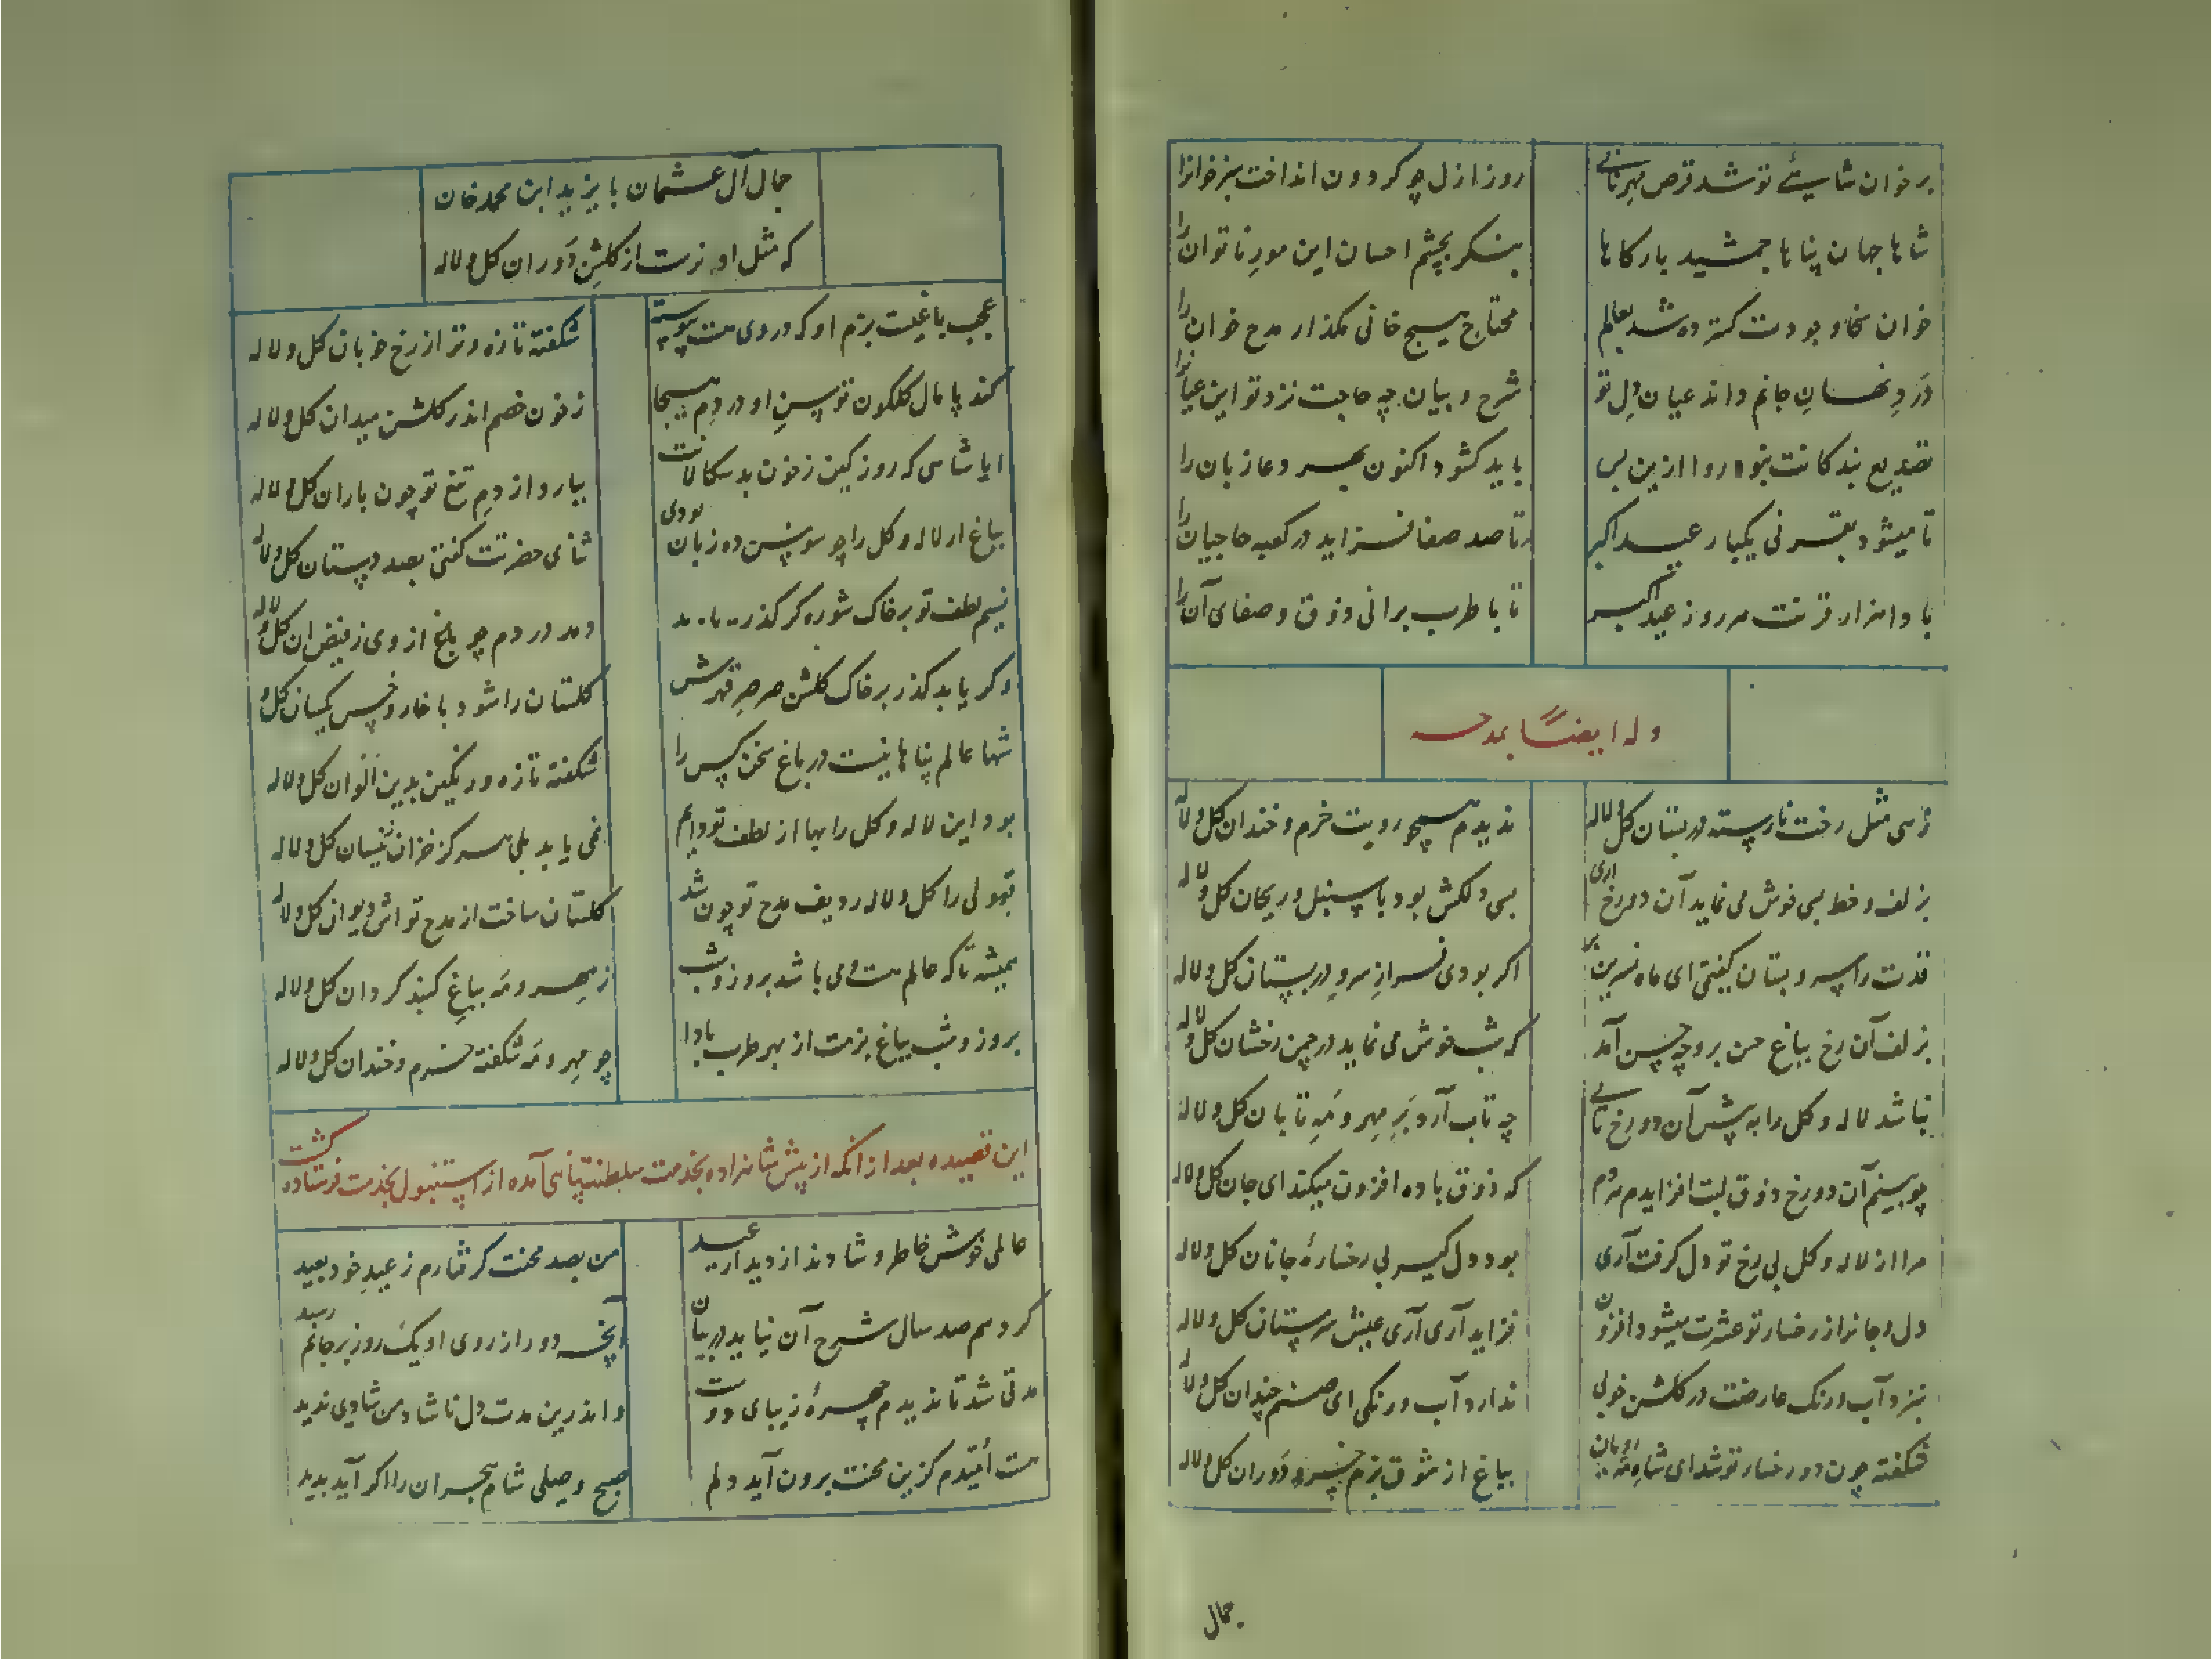 بر خوان شاهیئ تو شد قرص مهر نانی
روز ازل چو کردون انداخت بهر خوانرا
شاها جهان پناها جمشید بارکاها
بنکر بچشم احسان این مور ناتوان را
خوان سخا و جودت کسترده شد بعالم
محتاج هیچ خانی مکذار مدح خوان را
درد نهان جانم داند عیان دل تو
شرح و بیان چه حاجت نزد تو این عیانرا
تصدیع بندکانت نبود روا ازین بس
باید کشود اکنون بهر دعا زبان را
تا میشود بقرنی یکبار عید اکبر
تا صد صفا فزاید در کعبه حاجیان را
بادا هزار قرنت هر روز عید اکبر
تا با طرب برانی ذوق و صفای آن را
وله ایضًا بمدحه
زهی مثل رخت نارسته در بستان کل و لاله
ندیدم همچو رویت خرم و خندان کل و لاله
بزلف و خط بسی خوش می نماید آن دو رخ اری
بسی دلکش بود با سنبل و ریحان کل و لاله
قدت را سرو بستان کفتمی ای ماه نسرین بر
اکر بودی فراز سرو در بستان کل و لاله
بزلف آن رخ بباغ حسن بر وجه حسن آمد
که شب خوش می نماید در چمن رخشان کل و لاله
نباشد لاله و کل را به پیش آن دو رخ تابی
چه تاب آرد بر مهر و مه تابان کل و لاله
چو بینم آن دو رخ ذوق لبت افزایدم هر دم
که ذوق باده افزون میکند ای جان کل و لاله
مرا از لاله و کل بی رخ تو دل کرفت آری
بود دل کیر بی رخسارهٔ جانان کل و لاله
دل و جانرا ز رخسار تو عشرت میشود افزون
فزاید آری آری عیش سرمستان کل و لاله
بنزد آب و رنک عارضت در کلشن خوبی
ندارد آب و رنکی ای صنم چندان کل و لاله
شکفته چون دو رخسار تو شد ای شاه مه رویان
بباغ از شوق بزم خسرو دوران کل و لاله
جمال
جمال آل عثمان بایزید ابن محمد خان
که مثل او نرست از کلشن دوران کل و لاله
عجب باغیست بزم او که در وی هست پیوسته
شکفته تازه و تر از رخ خوبان کل و لاله
کند پامال کلکون توسن او در دم هیجا
ز خون خصم اندر کلشن میدان کل و لاله
ایا شاهی که روز کین ز خون بدسکالانت
ببارد از دم تیغ تو چون باران کل و لاله
بباغ ار لاله و کل را چو سوسن ده زبان بودی
ثنای حضرتت کفتی بصد دستان کل و لاله
نسیم لطف تو بر خاک شوره کر کذر
دمد در دم چو باغ از وی ز فیض ان کل و لاله
و کر یابد کذر بر خاک کلشن صرصر قهرش
کلستان را شود با خار و خس یکسان کل و
شها عالم پناها نیست در باغ سخن کس را
شکفته تازه و رنکین بدین الوان کل و لاله
بود این لاله و کل را بها از لطف تو دایم
نمی یابد بلی هرکز خزان نیسان کل و لاله
قبولی را کل و لاله ردیف مدح تو چون شد
کلستان ساخت از مدح تو اش دیوان کل و لاله
همیشه تا که عالم هست و می باشد بروز و شب
ز مهر و مه بباغ کنبد کردان کل و لاله
بروز و شب بباغ بزمت از بهر طرب بادا
چو مهر و مه شکفته خرم و خندان کل و لاله
این قصیده بعد از انکه از پیش شاهزاده بخدمت سلطنت پناهی آمده از استنبول بخدمت فرستاده کشت
عالمی خوش خاطر و شادند از دیدار عید
من بصد محنت کرفتارم ز عید خود بعید
کر دهم صد سال شرح آن نیاید در بیان
آنچه دور از روی او یک روز بر جانم رسید
مدتی شد تا ندیدم چهرهٔ زیبای دوست
و اندرین مدت دل ناشاد من شادی ندید
هست امیدم کزین محنت برون آید دلم
صبح وصلی شام هجران را اکر آید بدید